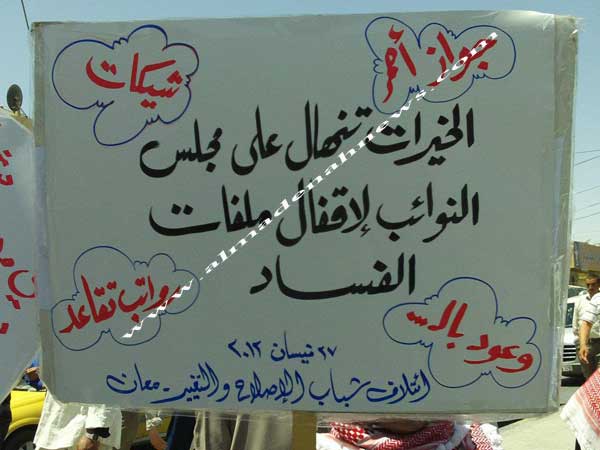 جواز أحمر
شيكات
الخيرات تنهال على مجلس
النوائب لاقفال ملفات
الفساد
رواتب تقاعد
وعود بالـ...
٢٧ نيسان ٢٠١٢
ائتلاف شباب الإصلاح والتغيير - معان
www.almadenahnews.com